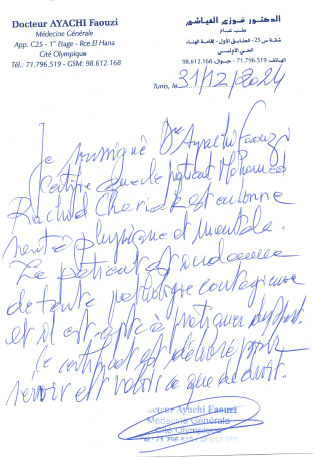 Docteur AYACHI Faouzi
Médecine Générale
App. C25 - 1° Etage - Rce.El Hana
Cité Olympique
Tél.: 71.796.519 - GSM: 98.612.168
الدكتور فوزي العياشي
طب عام
شقة س 25 - الطابق الأول - إقامة الهناء
الحي الأولمبي
الهاتف : 71.796.519 - جوال : 98.612.168
Tunis, le 31/12/2024
Je soussigné Dr Ayachi Faouzi
certifie que le patient Mohamed
Rachid est en bonne
santé physique et mentale.
Le patient est indemne
de toute pathologie contagieuse
et il est apte à pratiquer du sport.
Ce certificat est délivré pour
servir et valoir ce que de droit.
Docteur Ayachi Faouzi
Médecine Générale
Cité Olympique
Tél : 71 796 519